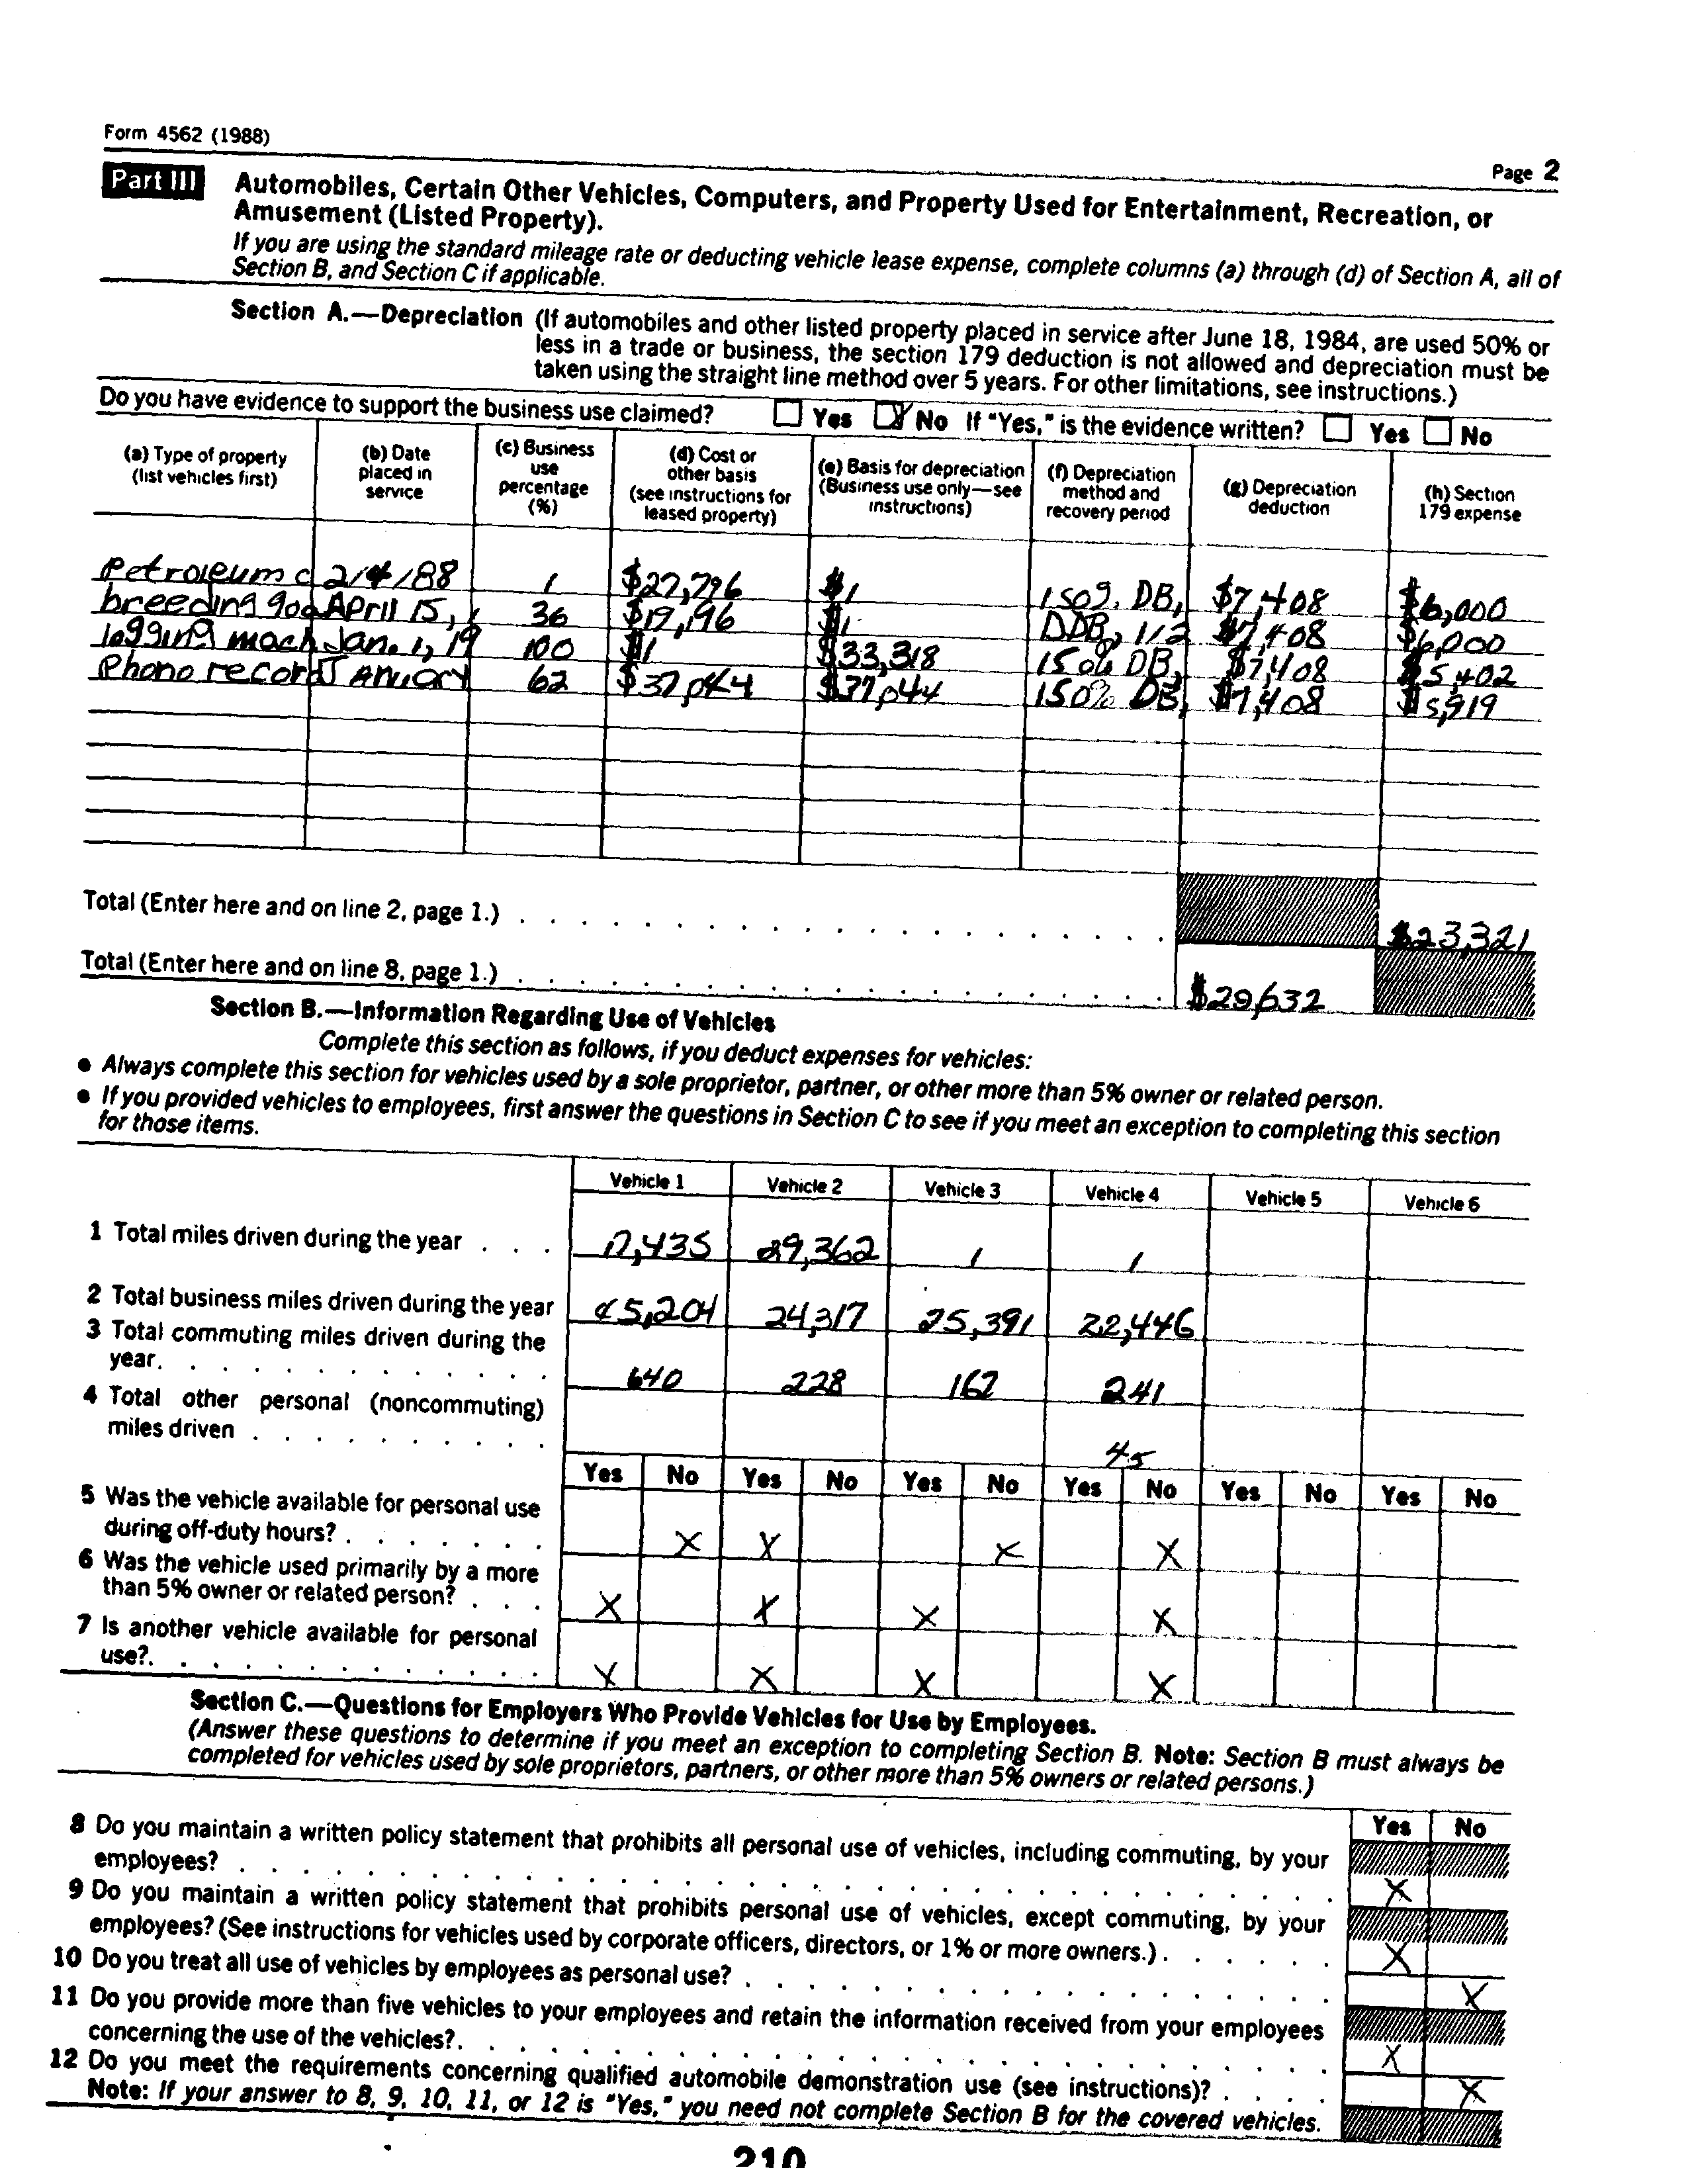 Form 4562 (1988)
Page 2
Part III Automobiles, Certain Other Vehicles, Computers, and Property Used for Entertainment, Recreation, or
Amusement (Listed Property).
If you are using the standard mileage rate or deducting vehicle lease expense, complete columns (a) through (d) of Section A, all of
Section B, and Section C if applicable.
Section A.—Depreciation (If automobiles and other listed property placed in service after June 18, 1984, are used 50% or
less in a trade or business, the section 179 deduction is not allowed and depreciation must be
taken using the straight line method over 5 years. For other limitations, see instructions.)
Do you have evidence to support the business use claimed? Yes No If "Yes," is the evidence written? Yes No
(a) Type of property (list vehicles first) (b) Date placed in service (c) Business use percentage (%) (d) Cost or other basis (see instructions for leased property) (e) Basis for depreciation (Business use only—see instructions) (f) Depreciation method and recovery period (g) Depreciation deduction (h) Section 179 expense
Petroleum c 2/4/88 1 $27,796 $1 150% DB, $7,408 $6,000
breeding goa April 15, 1 36 $19,196 $1 DDB, 1/2 $7,408 $6,000
logging mach Jan. 1, 19 100 $1 $33,318 150% DB, $7,408 $5,402
Phono record January 62 $37,044 $37,044 150% DB, $7,408 $5,919
Total (Enter here and on line 2, page 1.) $23,321
Total (Enter here and on line 8, page 1.) $29,632
Section B.—Information Regarding Use of Vehicles
Complete this section as follows, if you deduct expenses for vehicles:
● Always complete this section for vehicles used by a sole proprietor, partner, or other more than 5% owner or related person.
● If you provided vehicles to employees, first answer the questions in Section C to see if you meet an exception to completing this section
for those items.
Vehicle 1 Vehicle 2 Vehicle 3 Vehicle 4 Vehicle 5 Vehicle 6
1 Total miles driven during the year 17,435 29,362 1 1
2 Total business miles driven during the year 45,204 24,317 25,391 22,446
3 Total commuting miles driven during the
year. 640 228 162 241
4 Total other personal (noncommuting)
miles driven 45
Yes No Yes No Yes No Yes No Yes No Yes No
5 Was the vehicle available for personal use
during off-duty hours? X X X X
6 Was the vehicle used primarily by a more
than 5% owner or related person? X X X X
7 Is another vehicle available for personal
use?. X X X X
Section C.—Questions for Employers Who Provide Vehicles for Use by Employees.
(Answer these questions to determine if you meet an exception to completing Section B. Note: Section B must always be
completed for vehicles used by sole proprietors, partners, or other more than 5% owners or related persons.)
Yes No
8 Do you maintain a written policy statement that prohibits all personal use of vehicles, including commuting, by your
employees? X
9 Do you maintain a written policy statement that prohibits personal use of vehicles, except commuting, by your
employees? (See instructions for vehicles used by corporate officers, directors, or 1% or more owners.) X
10 Do you treat all use of vehicles by employees as personal use? X
11 Do you provide more than five vehicles to your employees and retain the information received from your employees
concerning the use of the vehicles?. X
12 Do you meet the requirements concerning qualified automobile demonstration use (see instructions)? X
Note: If your answer to 8, 9, 10, 11, or 12 is "Yes," you need not complete Section B for the covered vehicles.
210